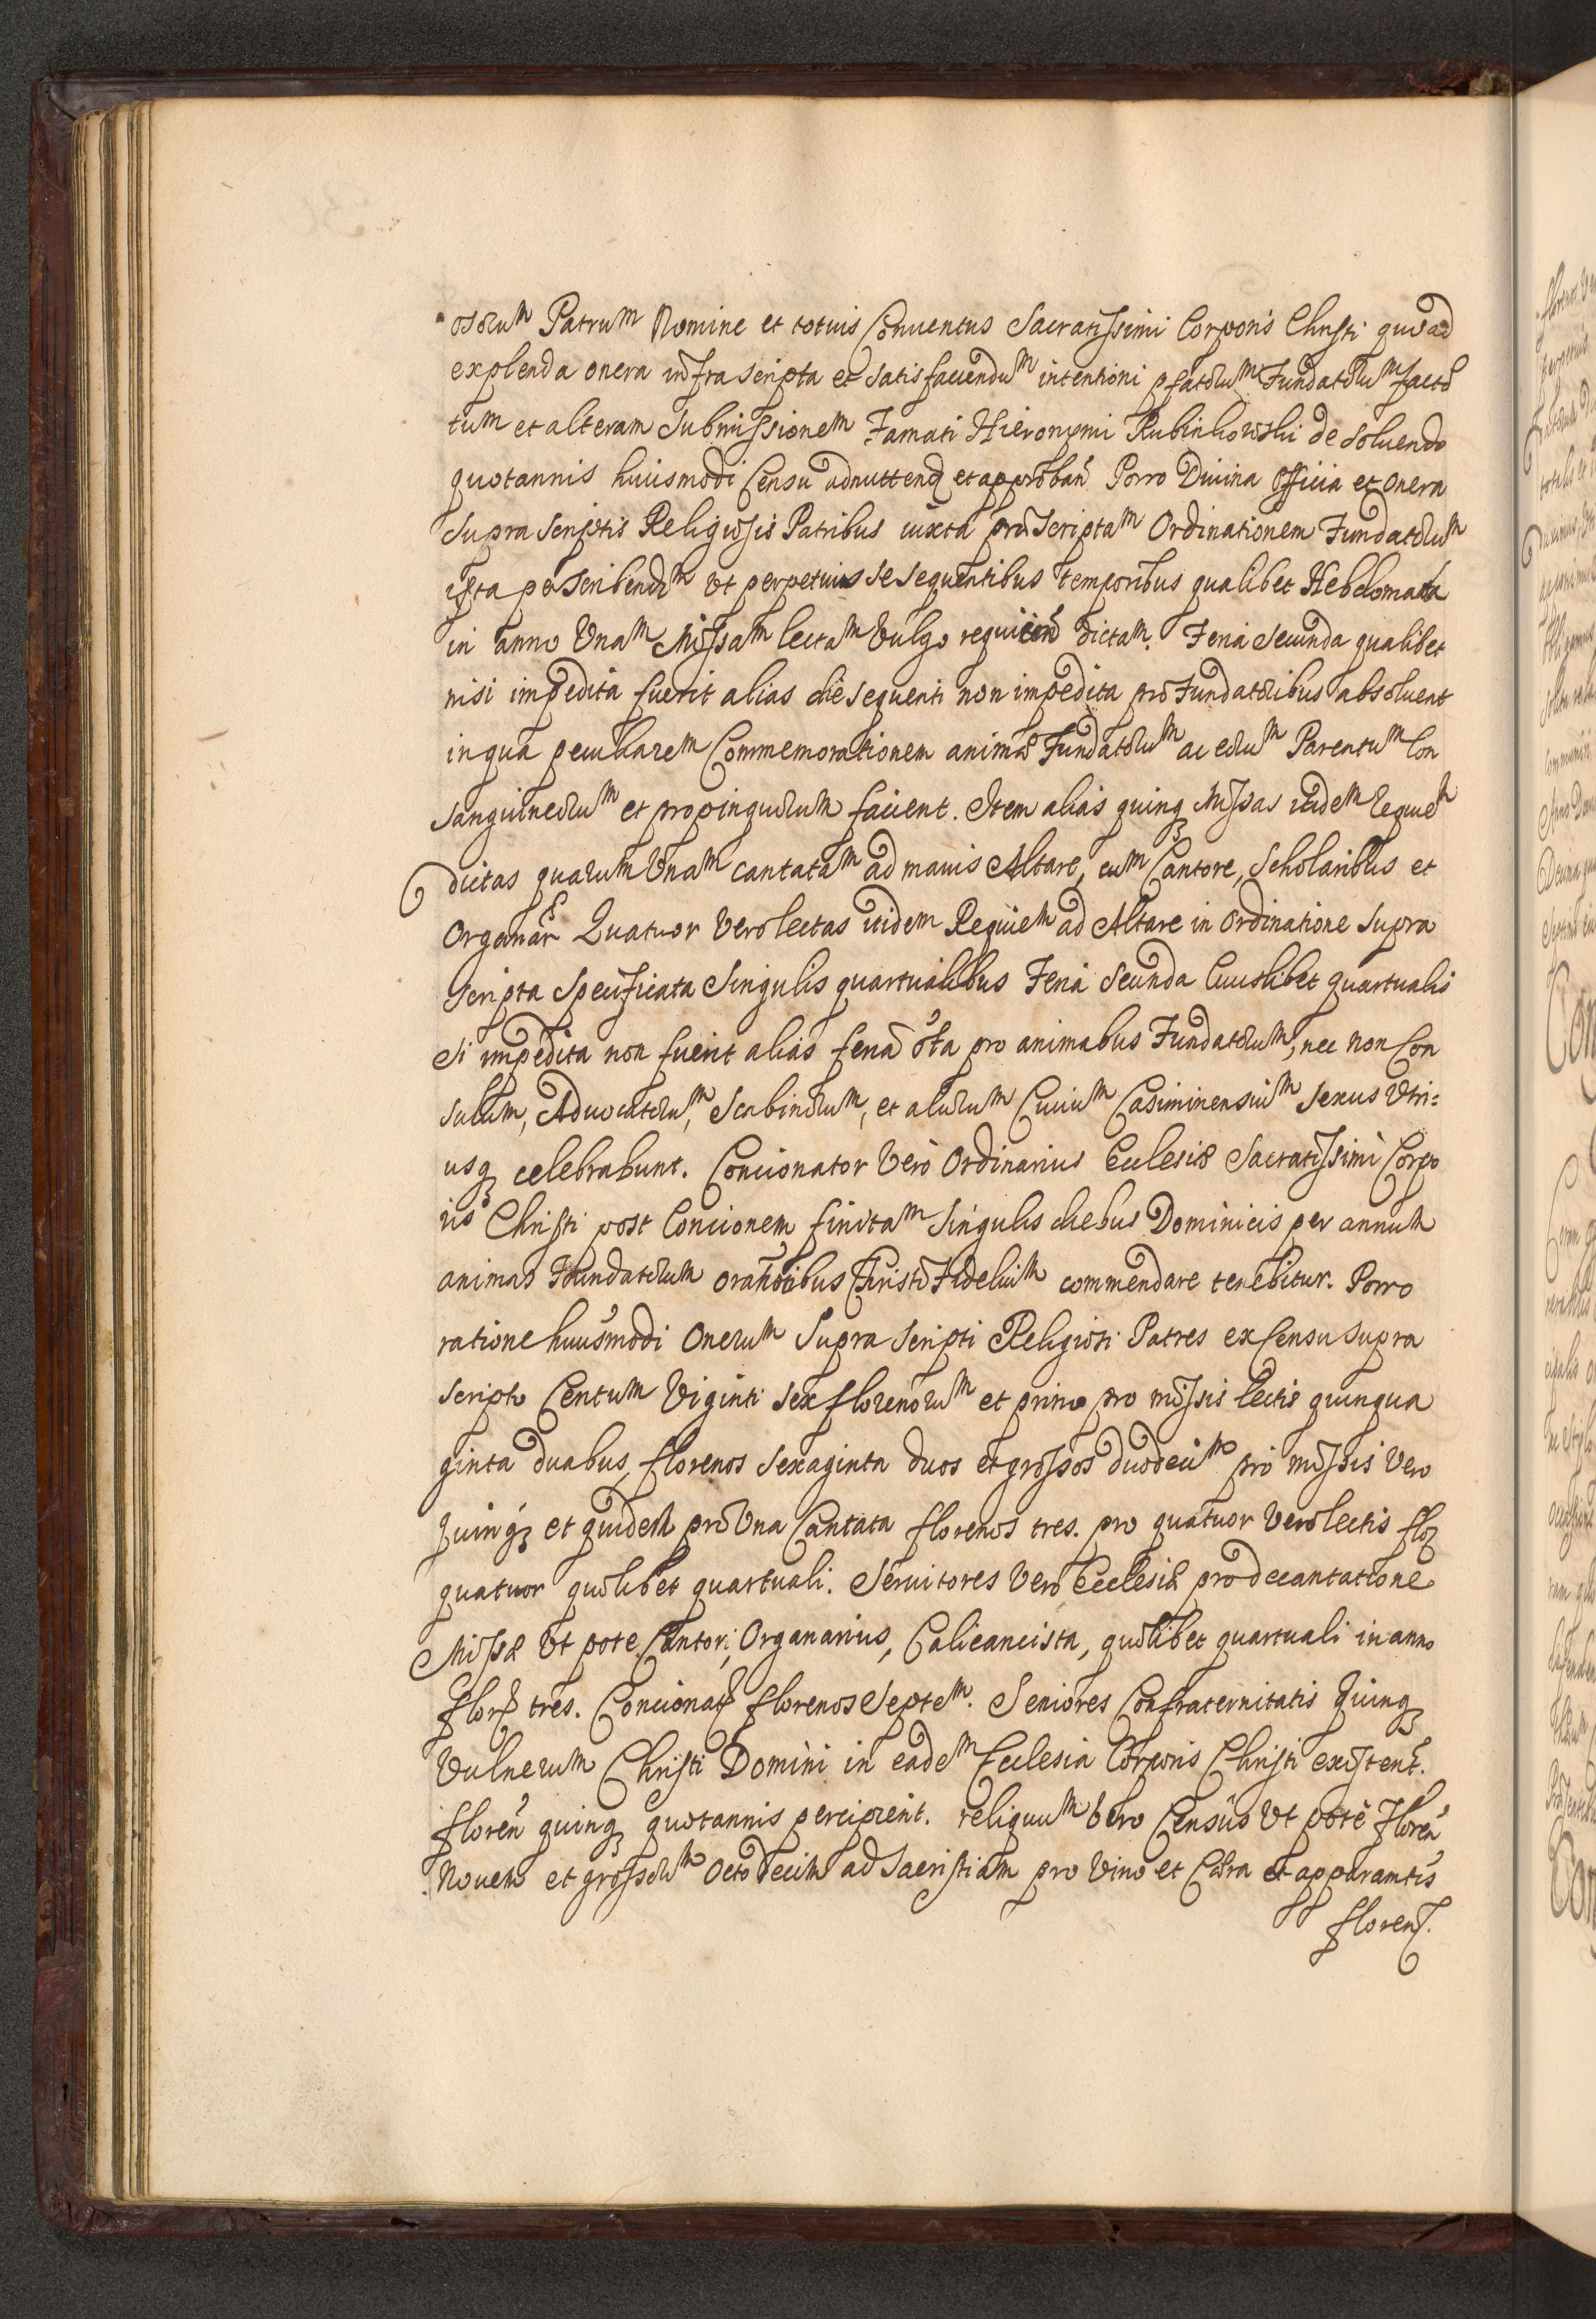 osorum Patrum Nomine et totuis Conuentus Sacratissimi Corporis Christi quo ad
explenda onera infra scripta et satisfaciendum intentioni pfatorum Fundatorum facto
tum et alteram Submissionem Famati Hieronymi Rubinkowski de soluendo
quotannis huiusmodi Censu admittend et approban Porro Diuina Officia et onera
supra scriptis Religiosis Patribus iuxta praescriptam Ordinationem Fundatorum
ista pscribendo ut perpetuis se sequentibus temporibus qualibet Hebdomada
in anno Unam Missam lectam Vulgo requiem dictam. Feria Secunda qualibet
nisi impedita fuerit alias die sequenti non impedita pro Fundatoribus absoluent
in qua peculiarem Commemorationem animae Fundatorum ac eorum Parentum Con
sanguineorum et propinquorum facient. Item alias quinq Missas itidem Requiem
dictas quarum Unam cantatam ad maius Altare, cum Cantore, Scholaribus et
Organar Quatuor Vero lectas itidem Requiem ad Altare in Ordinatione Supra
scripta Specificata Singulis quartualibus Feria Secunda Cuiuslibet quartualis
Si impedita non fuerit alias feria 6ta pro animabus Fundatorum, nec non Con
sulum, Aduocatorum, Scabinorum, et aliorum Ciuium Casimiriensium Sexus Vtri=
usq celebrabunt. Concionator Vero Ordinarius Ecclesiae Sacratissimi Corpo
ris Christi post Concionem finitam singulis diebus Dominicis per annum
animas Fundatorum orationibus Christi Fidelium commendare tenebitur. Porro
ratione huiusmodi Onerum Supra scripti Religiosi Patres ex Censu supra
scripto Centum Viginti sex florenorum et primo pro missis lectis quinqua
ginta duabus florenos sexaginta duos et grossos duodecim pro missis Vero
quinq et quidem pro Una Cantata florenos tres. pro quatuor Vero lectis flo
quatuor quolibet quartuali. Seruitores Vero Ecclesiae pro decantatione
Missae Ut pote Cantori, Organarius, Calicancista, quolibet quartuali in anno
flor tres. Concionat florenos Septem. Seniores Confraternitatis Quinq
Vulnerum Christi Domini in eadem Ecclesia Corporis Christi existent.
floren quinq quotannis percipient. reliquum Vero Census Ut pote Floren
Nouem et grossorum Octodecim ad Sacristiam pro Vino et Cera et apparamtis
floren.